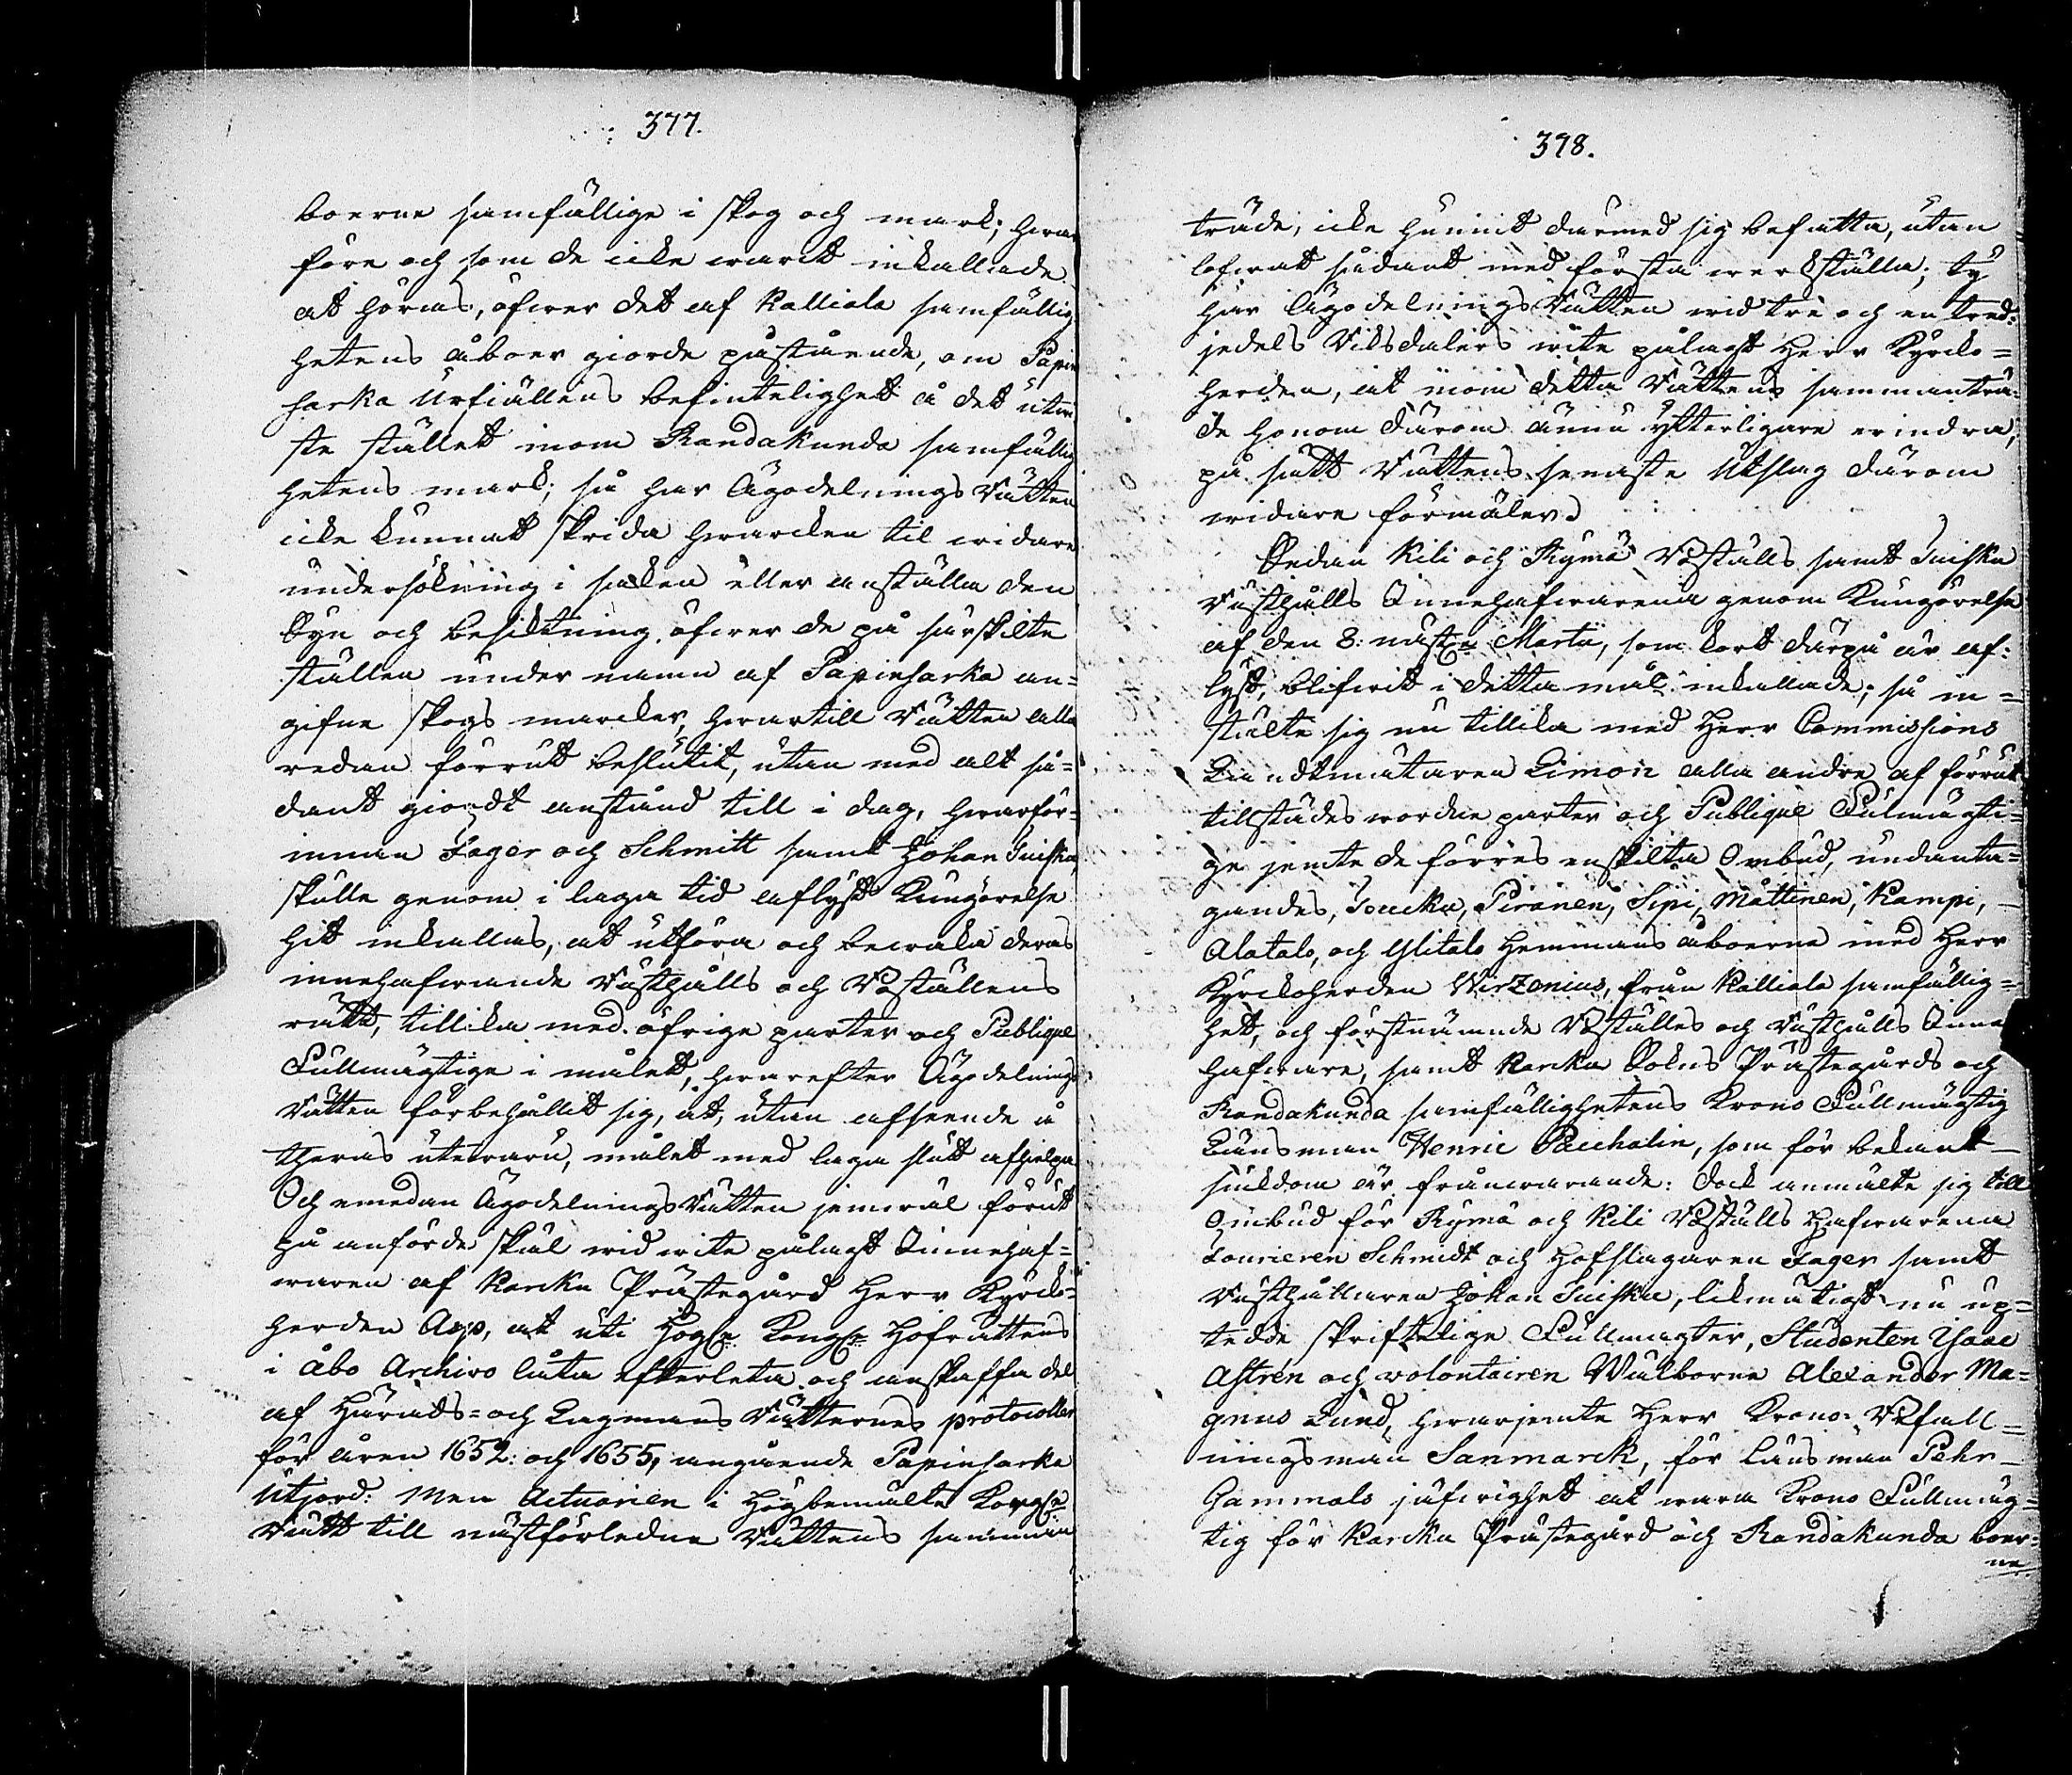 377.
boerne samfällige i skog och mark; hwar
före och som de icke warit inkallade
at höras, öfwer det af Kalliala samfällig
hetens åboer giorde påstående, om Papin
sarka Urfiällens befintelighet å det utwi
ste stället inom Randakunda samfällig
hetens mark; så har Ägodelnings Rätten
icke kunnat skrida hwarcken til widare
undersökning i saken eller anställa den
Syn och besiktning öfwer de på särskilte
ställen under namn af Papinsarka an=
gifne skogs marcker, hwartill Rätten alla
redan förrut beslutit, utan med alt så=
dant giordt anstånd till i dag, hwarför=
innan Fager och Schmitt samt Johan Suiska,
skulle genom i laga tid aflyst Kungörelse
hit inkallas, at utföra och bewaka deras
innehafwande Rusthålls och Boställens
rätt, tillika med öfrige parter och Publique
Fullmägtige i målet, hwarefter Ägodelnings
Rätten förbehållit sig, at, utan afseende å
theras utewaru, målet med laga slut afhielpa
Och emedan Ägodelnings Rätten jemwäl förut
på anförde skäl wid wite pålagt Innehaf=
waren af Karcku Prästegård Herr Kyrcko=
herden Asp, at uti Högl. Kongl. Hofrättens
i Åbo Archivo låta efterleta och anskaffa del
af Härads= och Lagmans Rätternes protocoller
för åren 1652: och 1655, angående Papinsarka
Utjord: Men Actuarien i Högbemälte Kongl.
Rätt till nästförledne Rättens samman
378.
träde, icke hunnit därmed sig befatta, utan
lofwat sådant med första werkställa; ty
har Ägodelnings Rätten wid tre och en tred=
jedels Riksdalers wite pålagt Herr Kyrcko=
herden, at inom detta Rättens sammanträ=
de honom därom ännu ytterligare erindra,
på sätt Rättens senaste Utslag därom
widare förmäler.
Sedan Kili och Rymä Boställs samt Suiska
Rusthålls Innehafwarena genom Kungörelse
af den 8: näst. Martii, som kort därpå är af=
lyst, blifwit i detta mål inkallade; så in=
stälte sig nu tillika med Herr Commissions
Landtmätaren Limon alla andre af förrut
tillstädes wordne parter och Publique Fulmägti=
ge jemte de förres enskilta Ombud, undanta=
gandes, Joucku, Piranen, Sipi, Mattinen, Kampi,
Alatalo, och Ylitalo Hemmans åboerne med Herr
Kyrckoherden Wirzenius, från Kalliala samfällig=
het, och förstnämnde Boställes och Rusthålls Inne
hafware, samt Karcku Sokns Prästegårds och
Randakunda samfällighetens Krono Fullmägtig
Länsman Henric Pacchalin, som för bekant
siukdom är frånwarande: dock anmälte sig till
Ombud för Rymä och Kili Boställs Hafwarena
Foureren Schmidt och Hofslagaren Fager samt
Rusthållaren Johan Suiska, likmätigt nu up=
tedde skriftelige Fullmagter, Studenten Isaac
Astrén och volontairen Wälborne Alexander Ma=
gnus Lund, hwarjemte Herr Krono Befall=
ningsman Sanmarck, för Länsman Pehr
Gammals jäfwighet at wara Krono Fullmäg=
tig för Karcku Prästegård och Randakunda boer=
ne